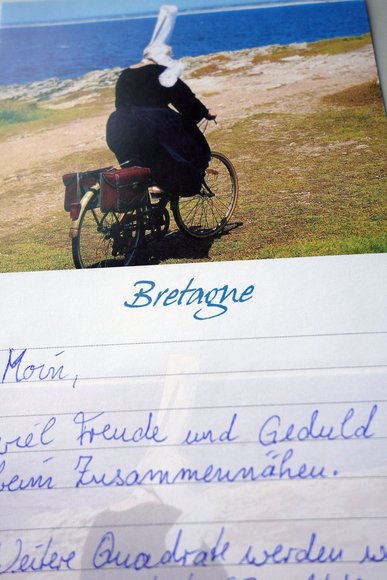 Bretagne
Moin,
viel Freude und Geduld
beim Zusammennähen.
Weitere Quadrate werden